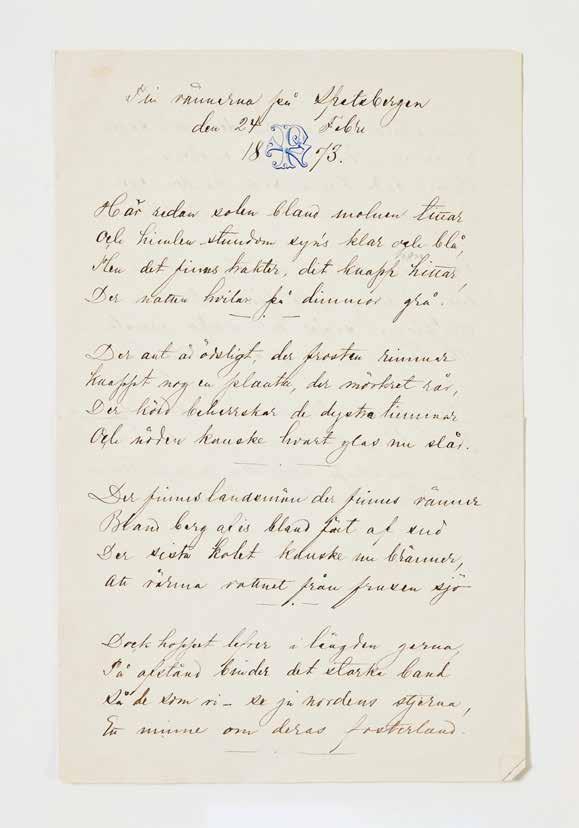 Till vännerna på Spetsbergen
den 24 Febr.
18 R 73.
Här redan solen bland molnen tittar
Och himlen stundom syn's klar och blå,
Men det finns trakter, dit knapt hon hittar,
Der natten hvilar på dimmor grå.
Der allt är ödsligt, der frosten rimmar
knappt nog en planta, der mörkret rår,
Der köld beherrskar de dystra timmar
Och nöden kanske hvart glas nu slår.
Der finnes landsmän der finnes vänner
Bland berg af is bland fält af snö
Der sista kolet kanske nu bränner,
Att värma vattnet från frusen sjö
Dock hoppet lefver i längden gerna,
På afstånd binder det starka band
Så de som vi - se ju nordens stjerna,
Ett minne om deras fosterland.